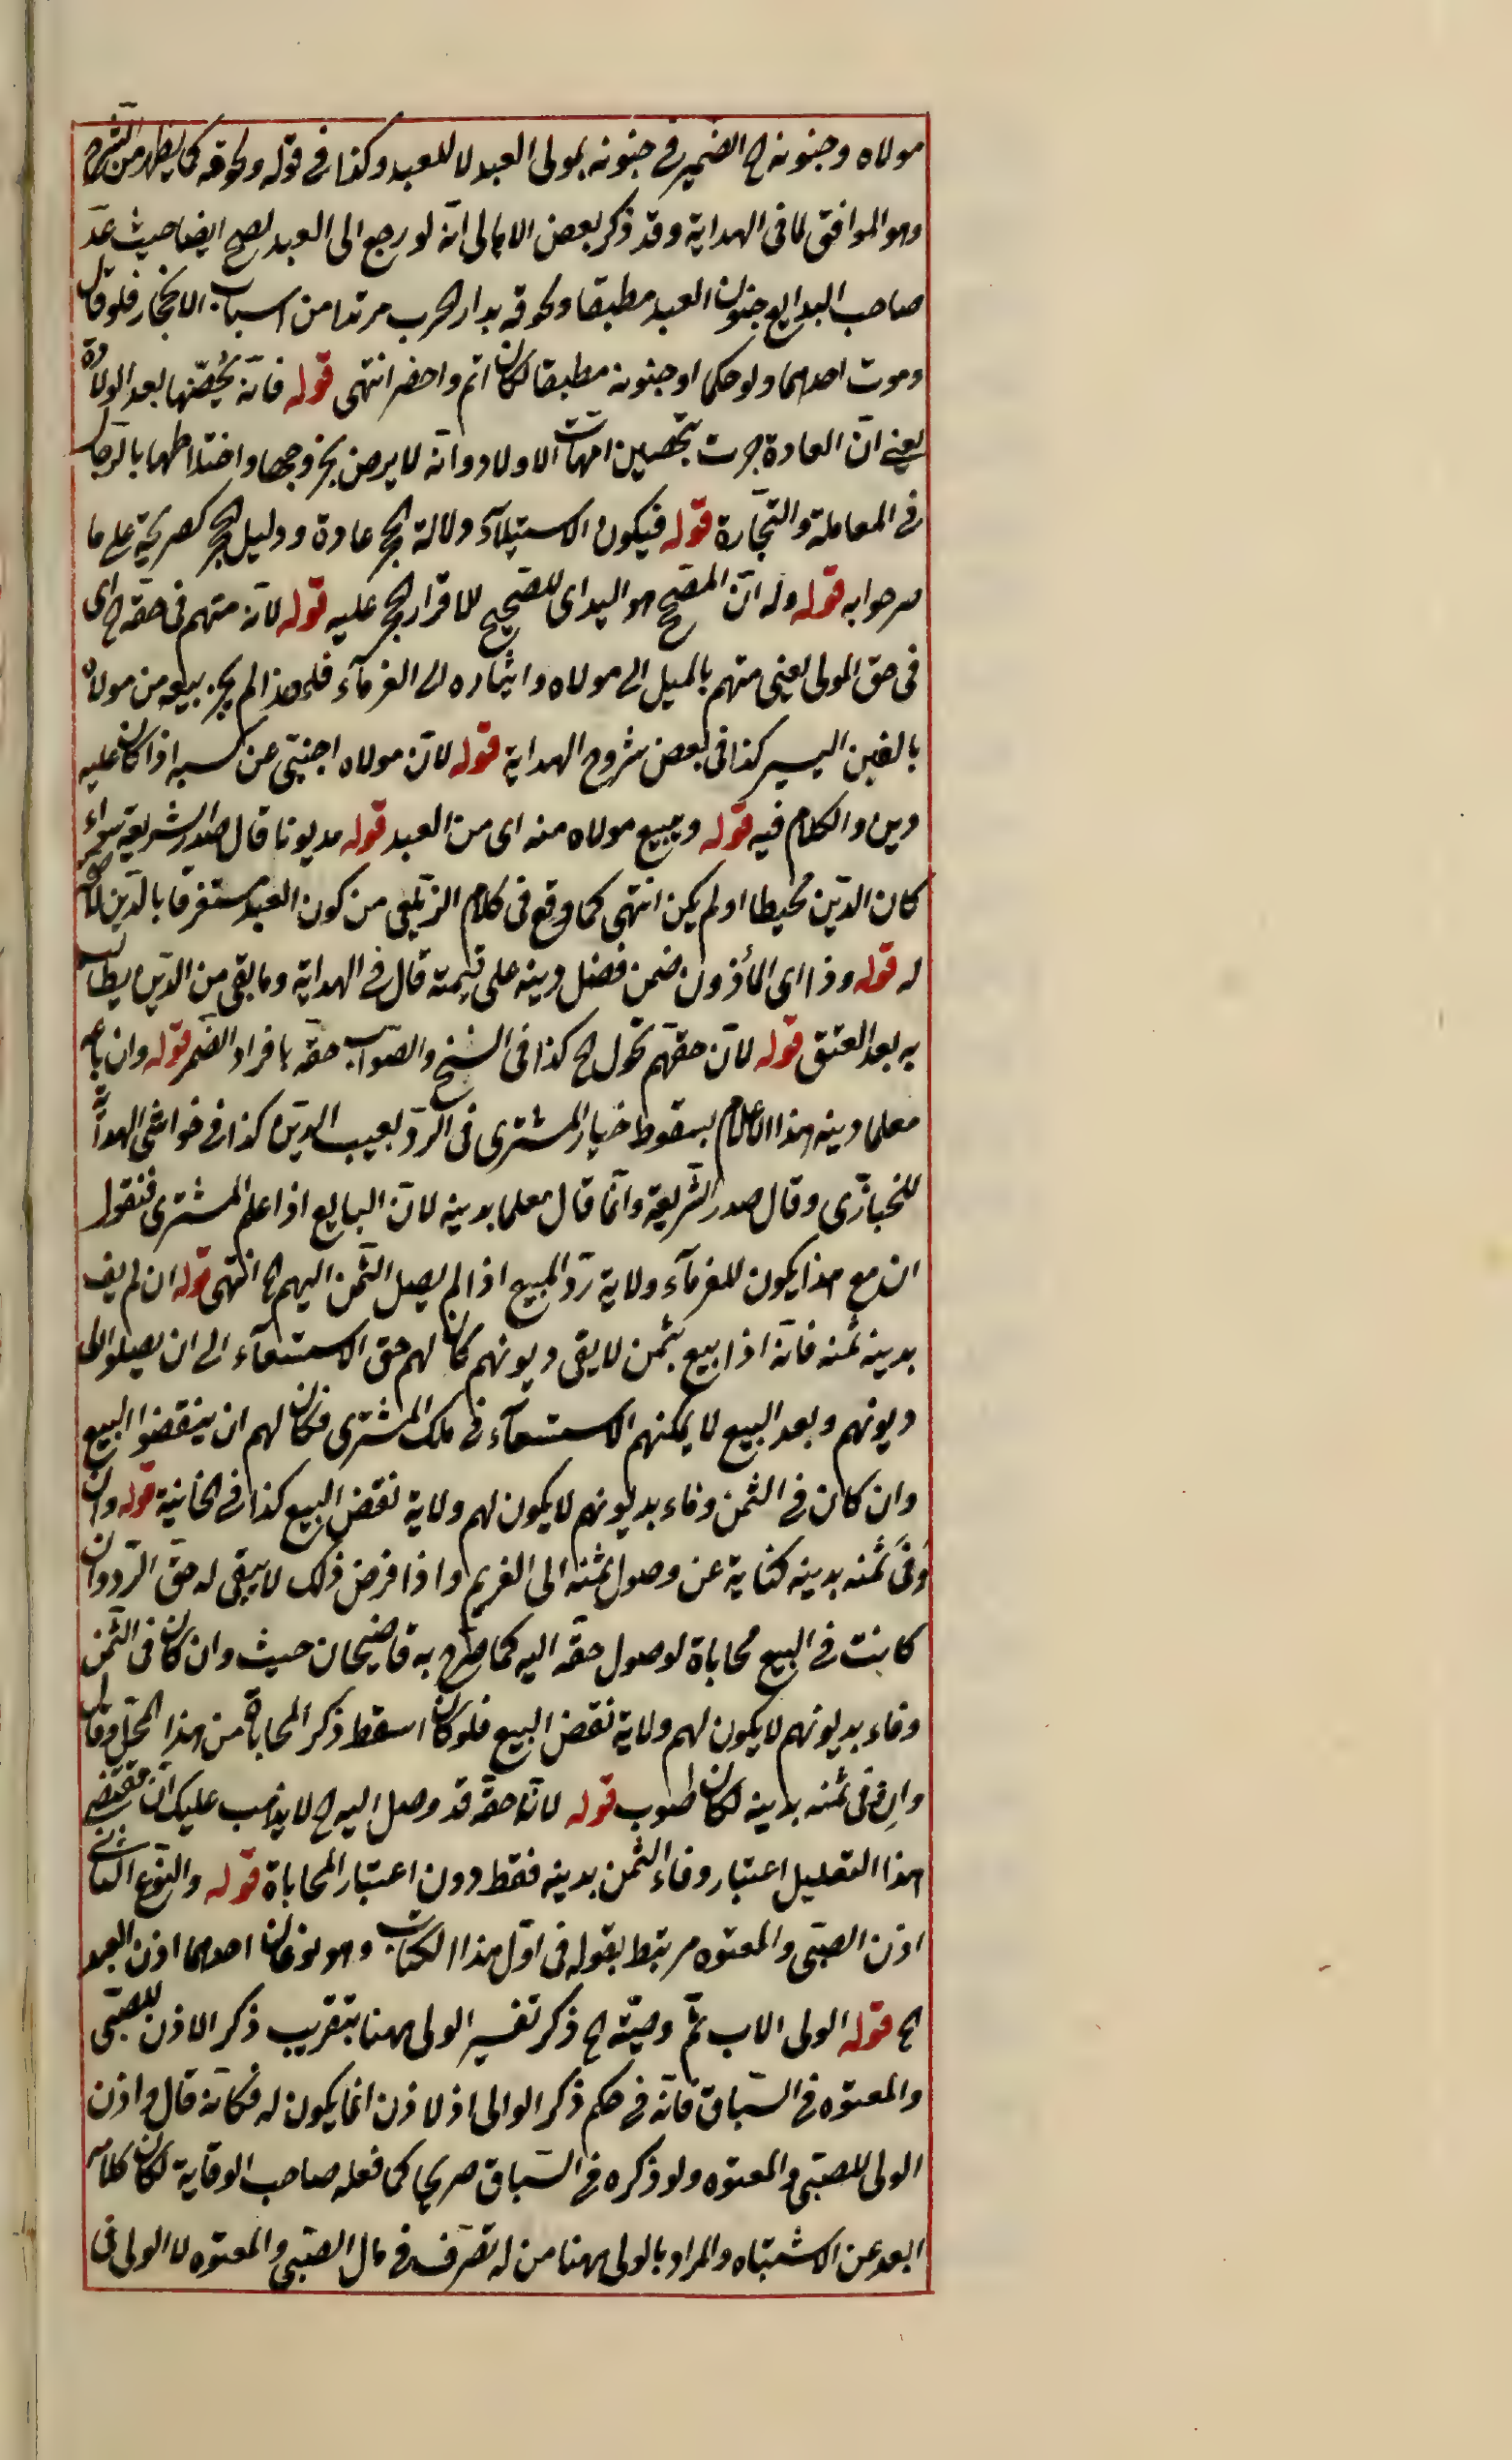 مولاه وجنونه الخ الضمير فى جنونه لمولى العبد لا للعبد وكذا فى قوله ولحوقه كما يظهر من الشرح
وهو الموافق لما فى الهداية وقد ذكر بعض الاهالى انّه لو رجع الى العبد لصح ايضا حيث عدّ
صاحب البدايع جنون العبد مطبقا ولحوقه بدار الحرب مرتدا من اسباب الانحجار فلو قال
وموت احدهما ولو حكما او جنونه مطبقا لكان اتم واخصر انتهى قوله فانّه يُحصّنها بعد الولادة
يعنى انّ العادة جرت بتحصين امّهات الاولاد وانّه لا يرضى بخروجها واختلاطها بالرّجال
فى المعاملة والتّجارة قوله فيكون الاستيلاد دلالة الحجر عادة ودليل الحجر كصريحه على ما
صرحوا به قوله وله انّ المصحّح هو اليد اى المصحّح للاقرار الحجر عليه قوله لانّه متهم فى حقّه الخ اى
فى حق المولى يعنى متهم بالميل الى مولاه وايثاره الى الغرمآء فلهذا لم يجز بيعه من مولاه
بالغبن اليسير كذا فى بعض شروح الهداية قوله لانّ مولاه اجنبىّ عن كسبه اذا كان عليه
دين والكلام فيه قوله ويبيع مولاه منه اى من العبد قوله مديونا قال صدر الشريعة سواء
كان الدّين محيطا او لم يكن انتهى كما وقع فى كلام الزّيلعى من كون العبد مستغرقا بالدّين
له قوله وذا اى المأذون ضمن فضل دينه على قيمته قال فى الهداية وما بقى من الدّين يطالب
به بعد العتق قوله لانّ حقهم تحول الخ كذا فى النسخ والصّواب حقّه بافراد الضّمير قوله وان باعه
معلما دينه هذا الاعلام لسقوط خيار المشترى فى الرّد بعيب الدّين كذا فى حواشى الهداية
للخبّازى وقال صدر الشّريعة وانّما قال معلما بدينه لانّ البايع اذا علم المشترى فنقول
ان مع هذا يكون للغرمآء ولاية ردّ المبيع اذا لم يصل الثّمن اليهم الخ انتهى قوله ان لم يف
بدينه ثمنه فانّه اذا بيع بثمن لا يفى ديونهم كان لهم حق الاستسعآء الى ان يصلوا الى
ديونهم وبعد البيع لا يمكنهم الاستسعآء فى ملك المشترى فكان لهم ان ينقضوا البيع
وان كان فى الثمن وفاء بديونهم لا يكون لهم ولاية نقض البيع كذا فى الخانية قوله وان
وَفَى ثَمنه بدينه كناية عن وصول ثمنه الى الغريم واذا فرض ذلك لا يبقى له حقّ الرّد وان
كانت فى البيع محاباة لوصول حقّه اليه كما صرّح به قاضيخان حيث وان كان فى الثّمن
وفاء بديونهم لا يكون لهم ولاية نقض البيع فلو كان اسقط ذكر المحاباة من هذا المحل وقال
وان وَفَى ثمنه بدينه لكان صوب قوله لانّه حقّه قد وصل اليه الخ لا يذهب عليك انّ مقتضى
هذا التعليل اعتبار وفاء الثّمن بدينه فقط دون اعتبار المحاباة قوله والنّوع الثانى
اذن الصبّى والمعتوه مرتبط بقوله فى اوّل هذا الكتاب وهو نوعان احدهما اذن العبد
الخ قوله الولى الاب ثمّ وصيّه الخ ذكر تفسير الولى ههنا بتقريب ذكر الاذن للصبّى
والمعتوه فى السّباق فانّه فى حكم ذكر الوالى اذ لا ذن انما يكون له فكانّه قال واذن
الولى للصبّى والمعتوه ولو ذكره فى السّباق صريحا كما فعله صاحب الوقاية لكان كلامه
ابعد عن الاشتباه والمراد بالولى ههنا من له تصّرف فى مال الصّبى والمعتوه لا الولى فى